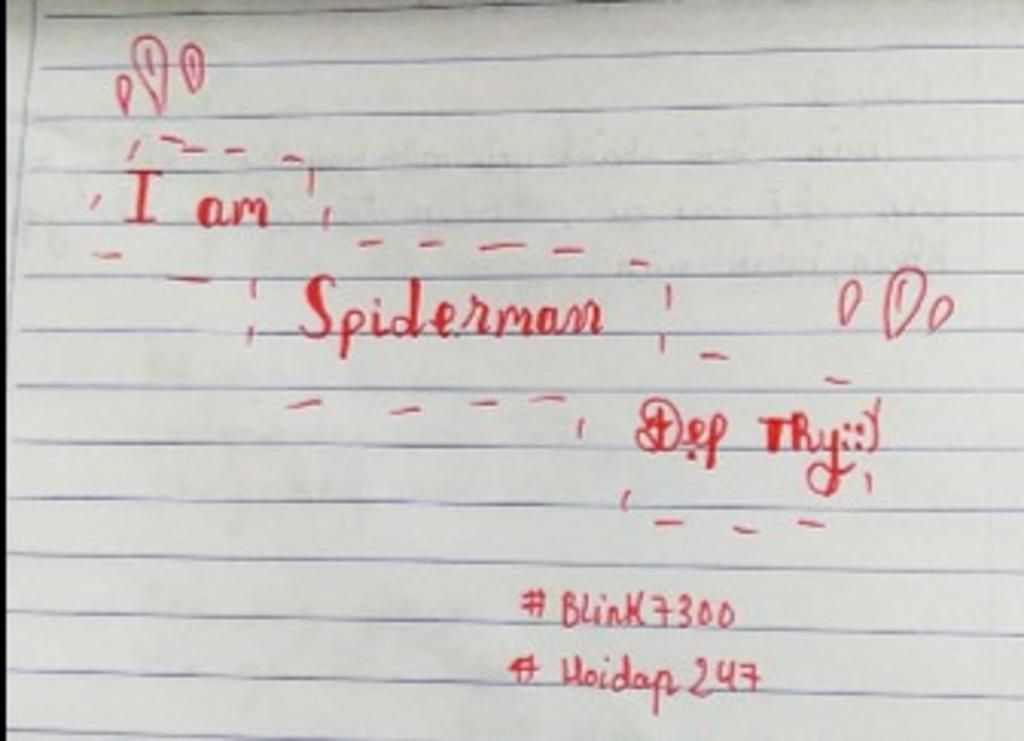 I am
Spiderman
Đẹp Thy::)
# Blink7300
# Hoidap247